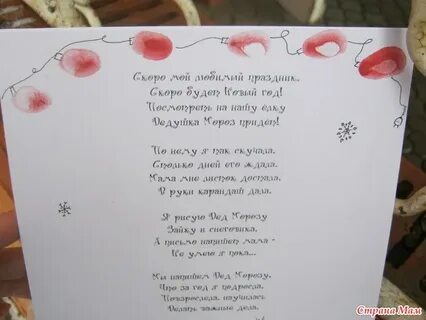 Скоро мой любимый праздник.
Скоро будет Новый год!
Посмотреть на нашу ёлку
Дедушка Мороз придет!
По нему я так скучала.
Столько дней его ждала.
Мама мне листок достала,
В руки карандаш дала.
Я рисую Дед Морозу
Зайку и снеговика,
А письмо напишет мама -
Не умею я пока...
Мы напишем Дед Морозу,
Что за год я подросла,
Повзрослела, научилась
Делать важные дела,
Страна Мам